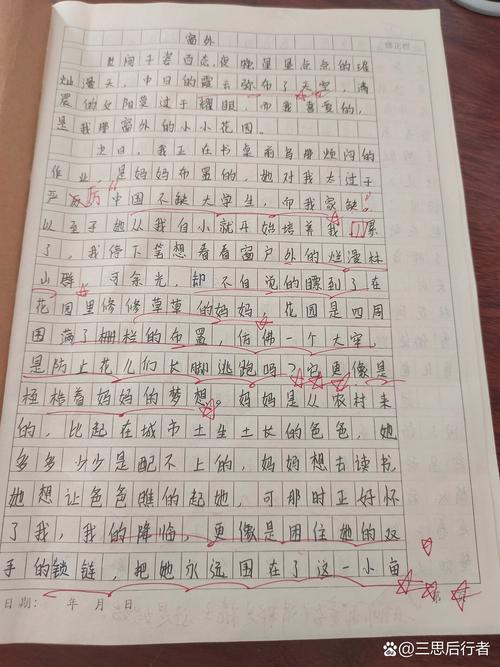 窗外
世间千姿百态,夜晚星星点点的璀
灿漫天,中日的霞云弥布了天空,清
晨的夕阳莫过于耀眼,而我喜爱的,
是我那窗外的小小花园。
次日,我正在书桌前写那烦闷的
作业,是妈妈布置的,她对我太过于
严厉“中国不缺大学生,而我家缺!”
以至于她从我自小就开始培养我,累
了,我停下笔想看看窗户外的烂漫林
山群,可余光,却不自觉的瞟到了在
花园里修修草草的妈妈。花园是四周
围满了栅栏的布置,仿佛一个大牢,
是防止花儿们长脚逃跑吗?它更像是
桎梏着妈妈的梦想。妈妈是从农村来
的,比起在城市土生土长的爸爸,她
多多少少是配不上的,妈妈想去读书,
她想让爸爸瞧的起她,可那时正好怀
了我,我的降临,更像是困住她的双
手的锁链,把她永远困在了这一小亩
日期: 年 月 日
批正栏
三思后行者